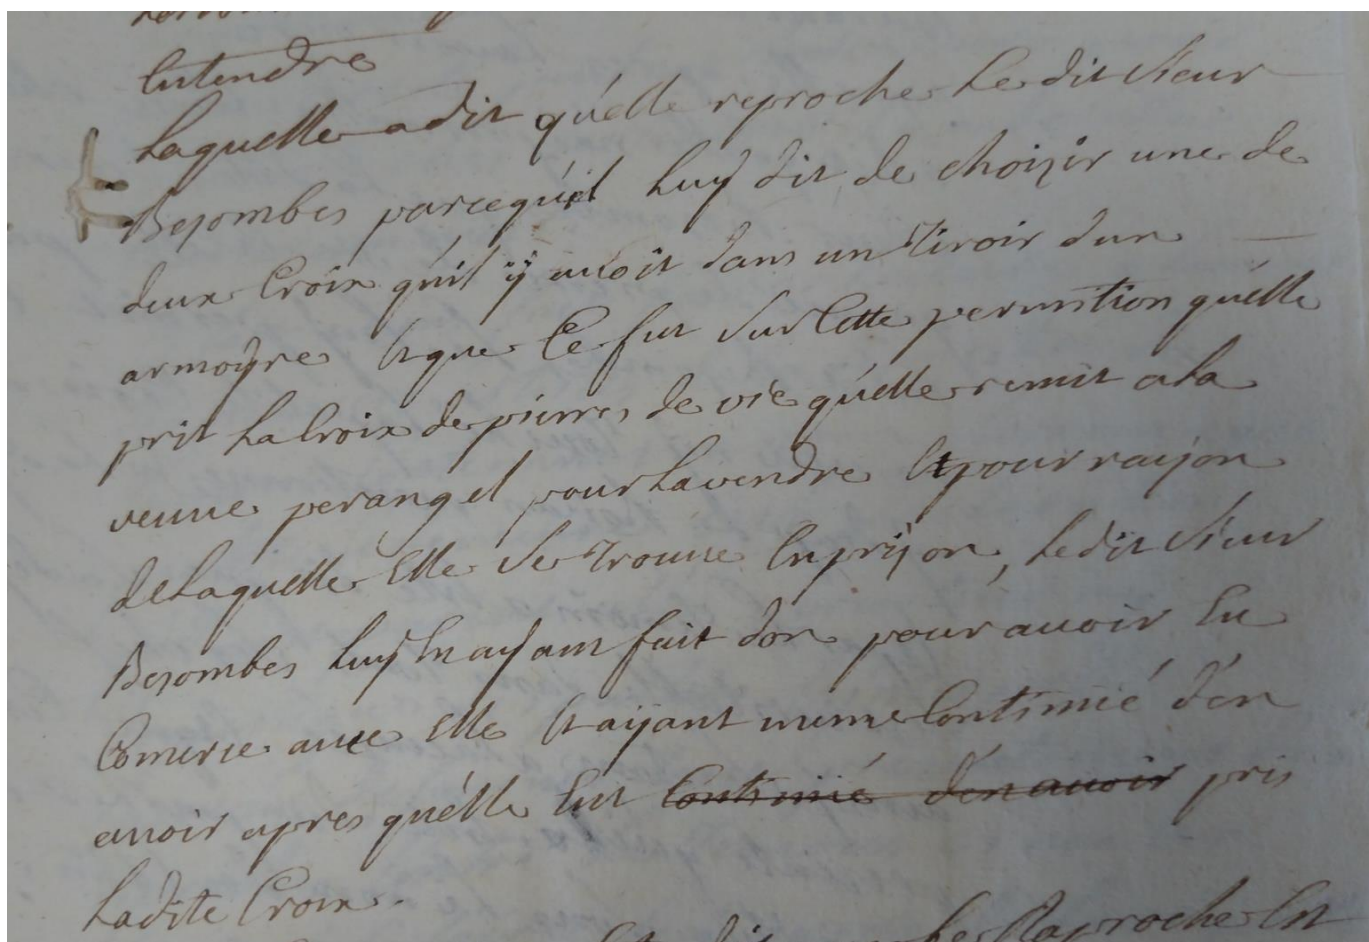 Entendre
Laquelle a dit qu'elle reproche Le dit Sieur
Besombes parcequ'il Luy dit de choizir une de
deux Croix qu'il ÿ avoit dans un Tiroir d'un
armoyre Et que Ce fut Sur Cette permition qu'elle
prit La Croix de pierres de vie qu'elle remit a La
veuve perangel pour La vendre Et pour raison
de Laquelle Elle Se Trouve En prison, Le dit Sieur
Besombes Luy En ayant fait don pour avoir Eu
Comerce avec Elle Et aÿant meme Continué d'en
avoir apres qu'elle Eut Continué d'en avoir pris
Ladite Croix.
Le Raproche Est